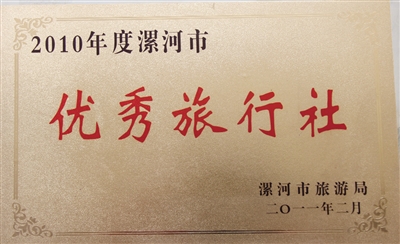 2010年度漯河市
优秀旅行社
漯河市旅游局
二〇一一年二月